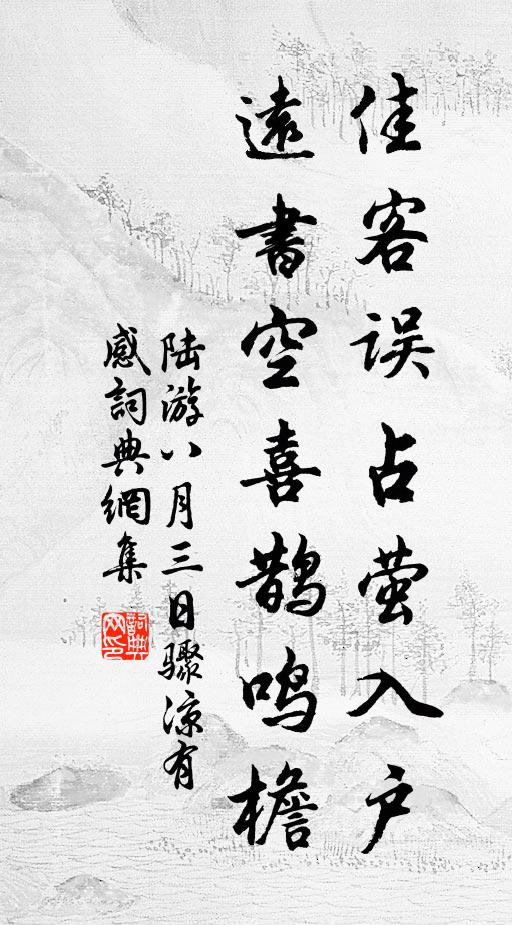 佳客误占萤入户
遠書空喜鹊鸣檐
陆游八月三日骤凉有
感詞典網集
詞典网印